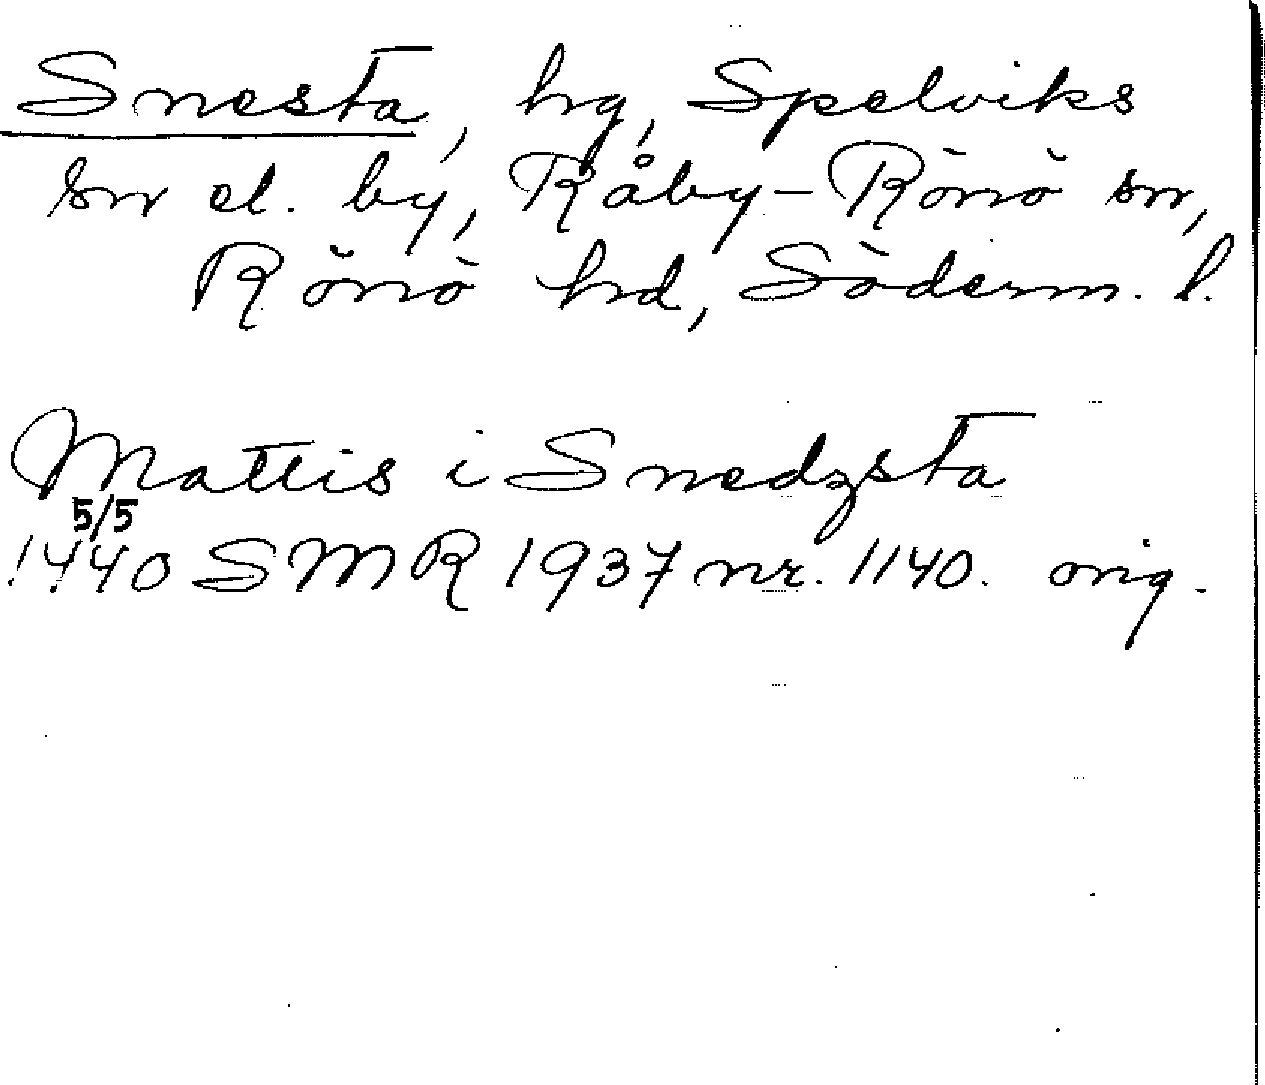 Snesta, hg, Spelviks
sn el. by, Råby-Rönö sn,
Rönö hd, Söderm. l.
Mattis i Snedzsta
5/5
1440 SMR 1937 nr. 1140. orig.